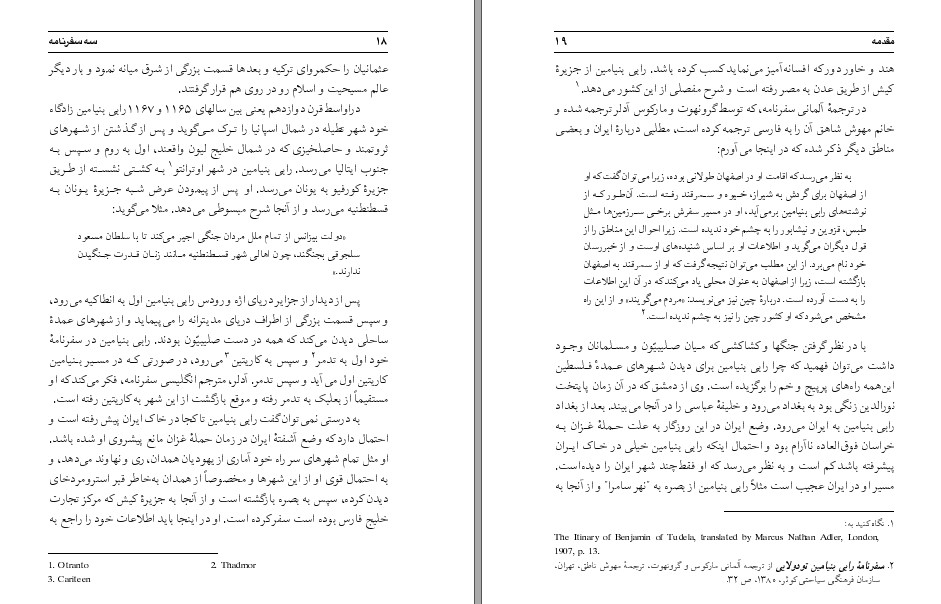 سه سفرنامه ۱۸
عثمانیان را حکمروای ترکیه و بعدها قسمت بزرگی از شرق میانه نمود و بار دیگر
عالم مسیحیت و اسلام رو در روی هم قرار گرفتند.
در اواسط قرن دوازدهم یعنی بین سالهای ۱۱۶۵ و ۱۱۶۷ رابی بنیامین زادگاه
خود شهر تطیله در شمال اسپانیا را ترک می‌گوید و پس از گذشتن از شهرهای
ثروتمند و حاصلخیزی که در شمال خلیج لیون واقعند، اول به روم و سپس به
جنوب ایتالیا می‌رسد. رابی بنیامین در شهر اوترانتو۱ به کشتی نشسته از طریق
جزیرهٔ کورفیو به یونان می‌رسد. او پس از پیمودن عرض شبه جزیرهٔ یونان به
قسطنطنیه می‌رسد و از آنجا شرح مبسوطی می‌دهد. مثلا می‌گوید:
«دولت بیزانس از تمام ملل مردان جنگی اجیر می‌کند تا با سلطان مسعود
سلجوقی بجنگند، چون اهالی شهر قسطنطنیه مانند زنان قدرت جنگیدن
ندارند.»
پس از دیدار از جزایر دریای اژه و رودس رابی بنیامین اول به انطاکیه می‌رود،
و سپس قسمت بزرگی از اطراف دریای مدیترانه را می‌پیماید و از شهرهای عمدهٔ
ساحلی دیدن می‌کند که همه در دست صلیبیّون بودند. رابی بنیامین در سفرنامهٔ
خود اول به تدمر۲ و سپس به کاریتین۳ می‌رود، در صورتی که در مسیر بنیامین
کاریتین اول می‌آید و سپس تدمر. آدلر، مترجم انگلیسی سفرنامه، فکر می‌کند که او
مستقیماً از بعلبک به تدمر رفته و موقع بازگشت از این شهر به کاریتین رفته است.
به درستی نمی‌توان گفت رابی بنیامین تا کجا در خاک ایران پیش رفته است و
احتمال دارد که وضع آشفتهٔ ایران در زمان حملهٔ غزان مانع پیشروی او شده باشد.
او مثل تمام شهرهای سر راه خود آماری از یهودیان همدان، ری و نهاوند می‌دهد، و
به احتمال قوی او از این شهرها و مخصوصاً از همدان به‌خاطر قبر استرومردخای
دیدن کرده، سپس به بصره بازگشته است و از آنجا به جزیرهٔ کیش که مرکز تجارت
خلیج فارس بوده است سفر کرده است. او در اینجا باید اطلاعات خود را راجع به
1. Otranto 2. Thadmor
3. Cariteen
مقدمه ۱۹
هند و خاور دور که افسانه‌آمیز می‌نماید کسب کرده باشد. رابی بنیامین از جزیرهٔ
کیش از طریق عدن به مصر رفته است و شرح مفصلی از این کشور می‌دهد.۱
در ترجمهٔ آلمانی سفرنامه، که توسط گرونهوت و مارکوس آدلر ترجمه شده و
خانم مهوش شاهق آن را به فارسی ترجمه کرده است، مطلبی دربارهٔ ایران و بعضی
مناطق دیگر ذکر شده که در اینجا می‌آورم:
به نظر می‌رسد که اقامت او در اصفهان طولانی بوده، زیرا می‌توان گفت که او
از اصفهان برای گردش به شیراز، خیوه و سمرقند رفته است. آن‌طور که از
نوشته‌های رابی بنیامین برمی‌آید، او در مسیر سفرش برخی سرزمین‌ها مثل
طبس، قزوین و نیشابور را به چشم خود ندیده است. زیرا احوال این مناطق را از
قول دیگران می‌گوید و اطلاعات او بر اساس شنیده‌های اوست و از خبررسان
خود نام می‌برد. از این مطلب می‌توان نتیجه گرفت که او از سمرقند به اصفهان
بازگشته است، زیرا از اصفهان به عنوان محلی یاد می‌کند که در آن این اطلاعات
را به دست آورده است. دربارهٔ چین نیز می‌نویسد: «مردم می‌گویند» و از این راه
مشخص می‌شود که او کشور چین را نیز به چشم ندیده است.۲
با در نظر گرفتن جنگها و کشاکشی که میان صلیبیّون و مسلمانان وجود
داشت می‌توان فهمید که چرا رابی بنیامین برای دیدن شهرهای عمدهٔ فلسطین
این‌همه راه‌های پرپیچ و خم را برگزیده است. وی از دمشق که در آن زمان پایتخت
نورالدین زنگی بود به بغداد می‌رود و خلیفهٔ عباسی را در آنجا می‌بیند. بعد از بغداد
رابی بنیامین به ایران می‌رود. وضع ایران در این روزگار به علت حملهٔ غزان به
خراسان فوق‌العاده ناآرام بود و احتمال اینکه رابی بنیامین خیلی در خاک ایران
پیشرفته باشد کم است و به نظر می‌رسد که او فقط چند شهر ایران را دیده است.
مسیر او در ایران عجیب است مثلاً رابی بنیامین از بصره به "نهر سامرا" و از آنجا به
۱. نگاه کنید به:
The Itinary of Benjamin of Tudela, translated by Marcus Nathan Adler, London,
1907, p. 13.
۲. سفرنامهٔ رابی بنیامین تودولایی از ترجمه آلمانی مارکوس و گرونهوت، ترجمهٔ مهوش ناطق، تهران،
سازمان فرهنگی سیاحتی کوثر، ۱۳۸۰، ص ۳۲.